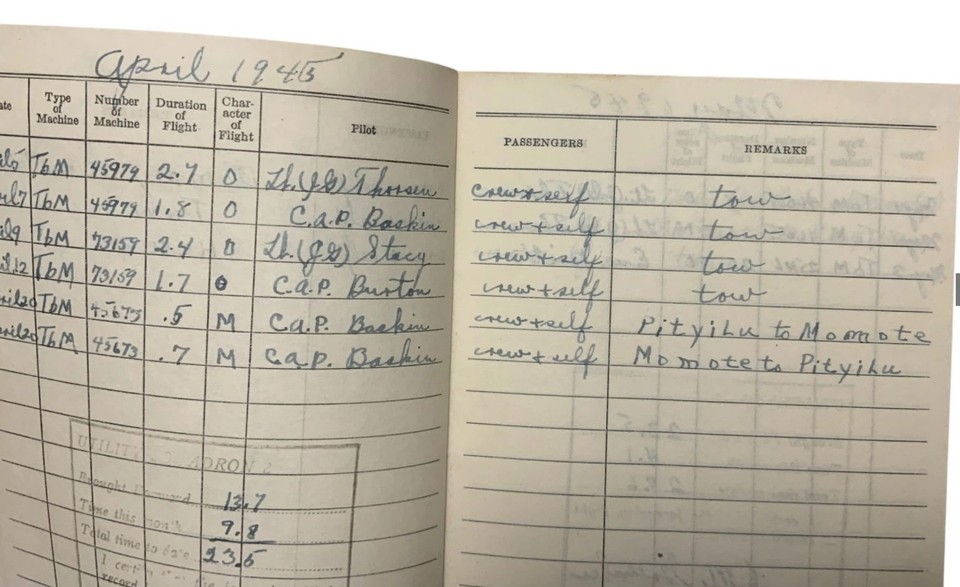 April 1945
Type of Machine Number of Machine Duration of Flight Char- acter of Flight Pilot PASSENGERS REMARKS
TbM 45979 2.7 O Lt.(JG) Thorsen crew+self tow
TbM 45979 1.8 O C.A.P. Baskin crew+self tow
TbM 73159 2.4 O Lt.(JG) Stacy crew+self tow
12 TbM 73159 1.7 O C.A.P. Burton crew+self tow
TbM 45673 .5 M C.A.P. Baskin crew+self Pityilu to Momote
TbM 45673 .7 M C.A.P. Baskin crew+self Momote to Pityilu
Brought Forward 13.7
Time this month 9.8
Total time to date 23.5
I
record